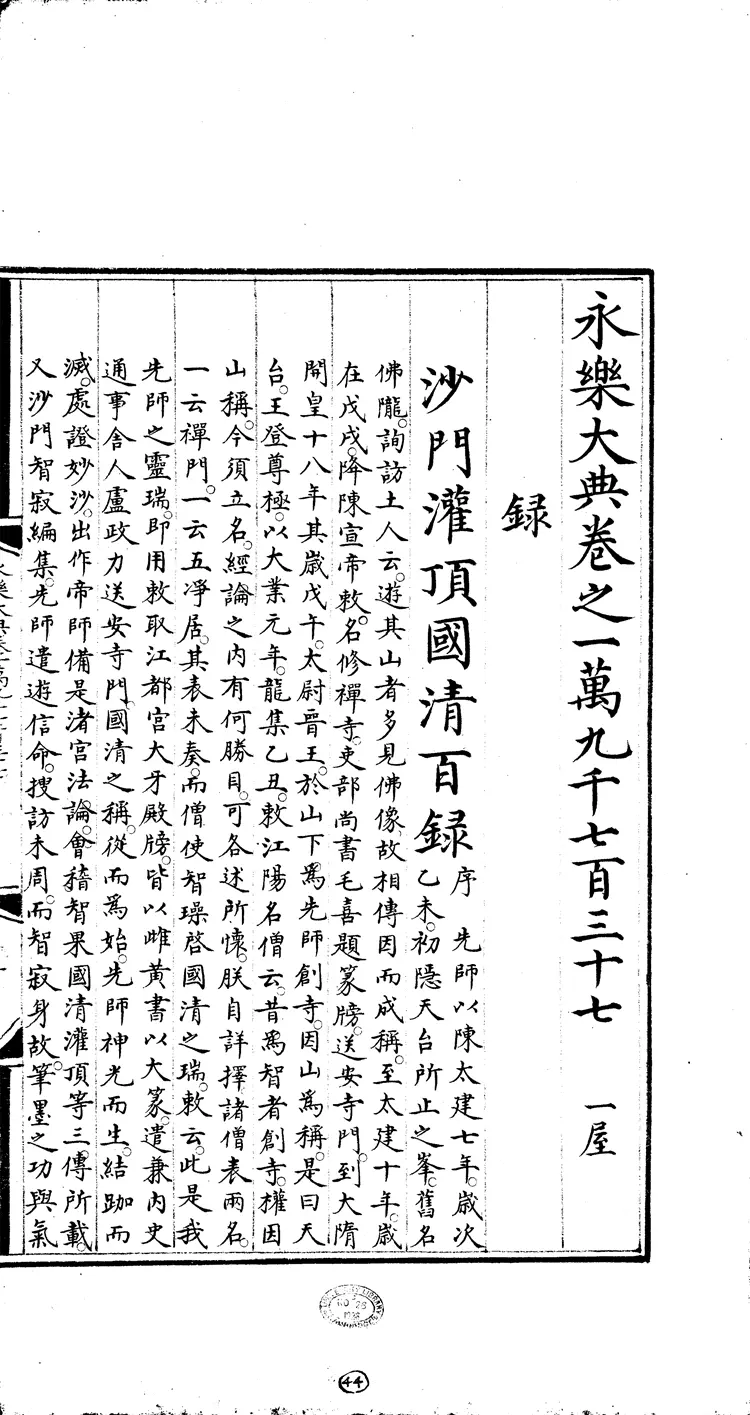 永樂大典卷之一萬九千七百三十七　一屋
録
沙門灌頂國清百録序　先師以陳太建七年。歲次
乙未。初隱天台所止之峯。舊名
佛隴。詢訪土人云。遊其山者多見佛像。故相傳因而成稱。至太建十年。歲
在戊戌。降陳宣帝敕。名修禪寺。吏部尚書毛喜題篆牓。送安寺門。到大隋
開皇十八年其歲戊午。太尉晋王。於山下爲先師創寺。因山爲稱。是曰天
台。王登尊極。以大業元年。龍集乙丑。敕江陽名僧云。昔爲智者創寺。權因
山稱。今須立名。經論之内有何勝目。可各述所懷。朕自詳擇諸僧表兩名。
一云禪門。一云五凈居。其表未奏。而僧使智璪啓國清之瑞。敕云。此是我
先師之靈瑞。即用敕取江都宮大牙殿牓。皆以雌黄書以大篆。遣兼内史
通事舍人盧政力送安寺門。國清之稱。從而爲始。先師神光而生。結跏而
滅。處證妙沙。出作帝師備是渚宮法論。會稽智果國清灌頂等三傳所載。
又沙門智寂編集。先師遣遊信命。搜訪未周。而智寂身故。筆墨之功與氣
44